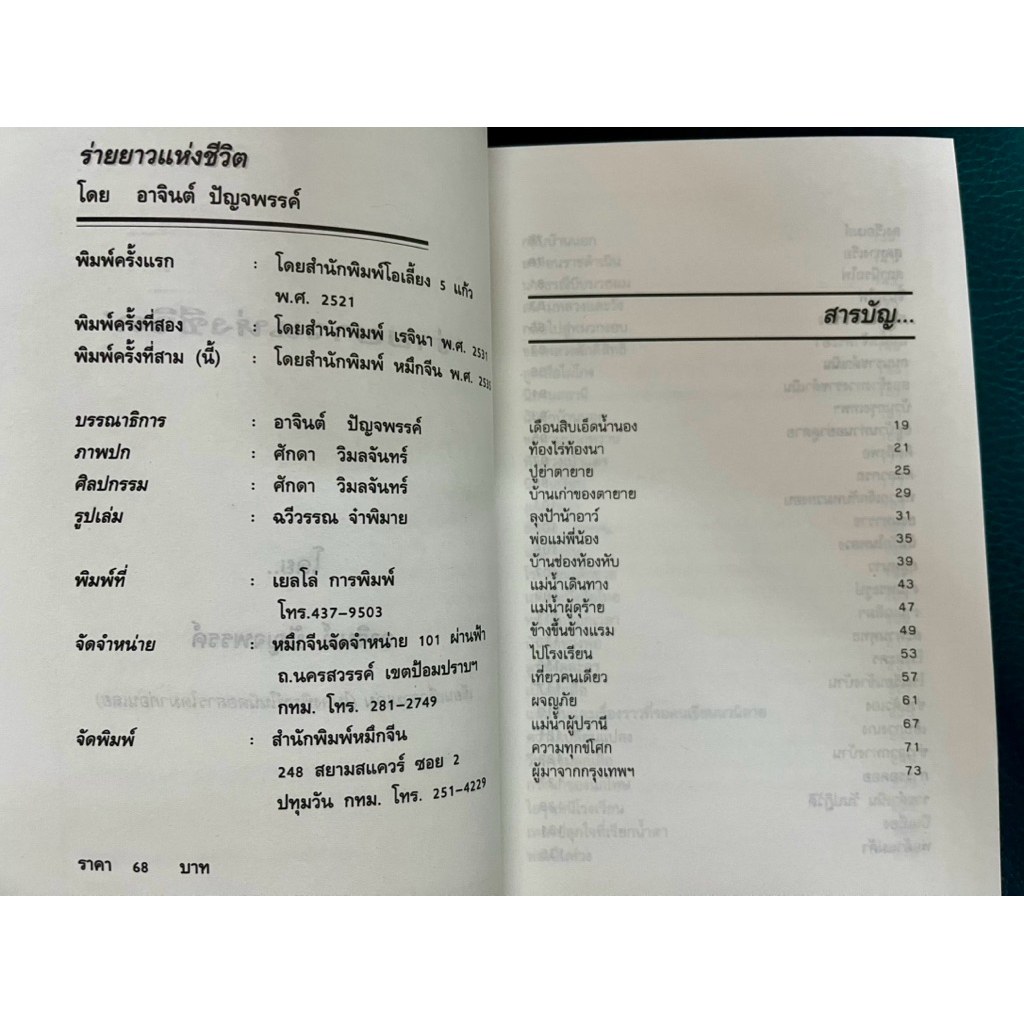 ร่ายยาวแห่งชีวิต
โดย อาจินต์ ปัญจพรรค์
พิมพ์ครั้งแรก : โดยสำนักพิมพ์โอเลี้ยง 5 แก้ว
พ.ศ. 2521
พิมพ์ครั้งที่สอง : โดยสำนักพิมพ์ เรจินา พ.ศ. 2531
พิมพ์ครั้งที่สาม (นี้) : โดยสำนักพิมพ์ หมึกจีน พ.ศ.
บรรณาธิการ : อาจินต์ ปัญจพรรค์
ภาพปก : ศักดา วิมลจันทร์
ศิลปกรรม : ศักดา วิมลจันทร์
รูปเล่ม : ฉวีวรรณ จำพิมาย
พิมพ์ที่ : เยลโล่ การพิมพ์
โทร.437-9503
จัดจำหน่าย : หมึกจีนจัดจำหน่าย 101 ผ่านฟ้า
ถ.นครสวรรค์ เขตป้อมปราบฯ
กทม. โทร. 281-2749
จัดพิมพ์ : สำนักพิมพ์หมึกจีน
248 สยามสแควร์ ซอย 2
ปทุมวัน กทม. โทร. 251-4229
ราคา 68 บาท
สารบัญ...
เดือนสิบเอ็ดน้ำนอง 19
ท้องไร่ท้องนา 21
ปู่ย่าตายาย 25
บ้านเก่าของตายาย 29
ลุงป้าน้าอาว์ 31
พ่อแม่พี่น้อง 35
บ้านช่องห้องหับ 39
แม่น้ำเดินทาง 43
แม่น้ำผู้ดุร้าย 47
ข้างขึ้นข้างแรม 49
ไปโรงเรียน 53
เที่ยวคนเดียว 57
ผจญภัย 61
แม่น้ำผู้ปรานี 67
ความทุกข์โศก 71
ผู้มาจากกรุงเทพฯ 73